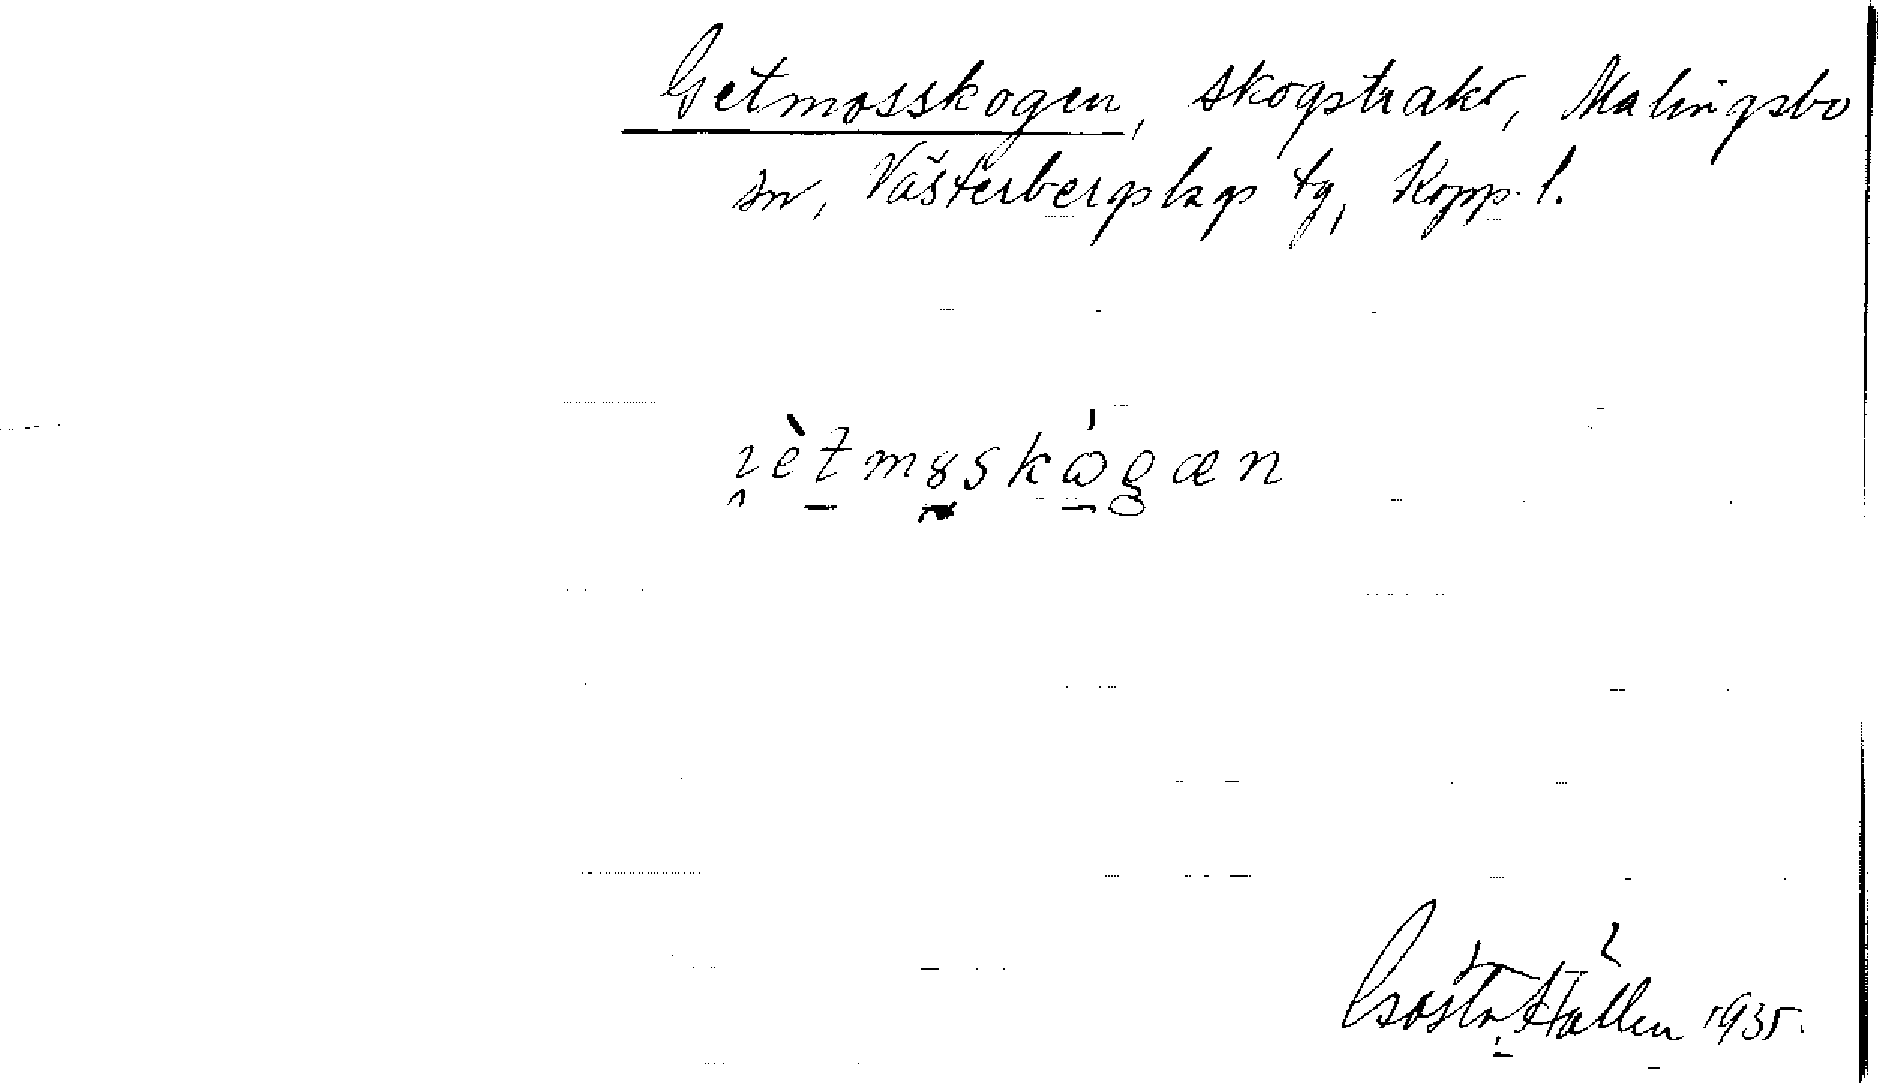 Getmosskogen, skogstrakt, Malingsbo
sn, Västerbergslags tg, Kopp. l.
ı̯ètmȣskȯgæn
Gösta Hallén 1935.